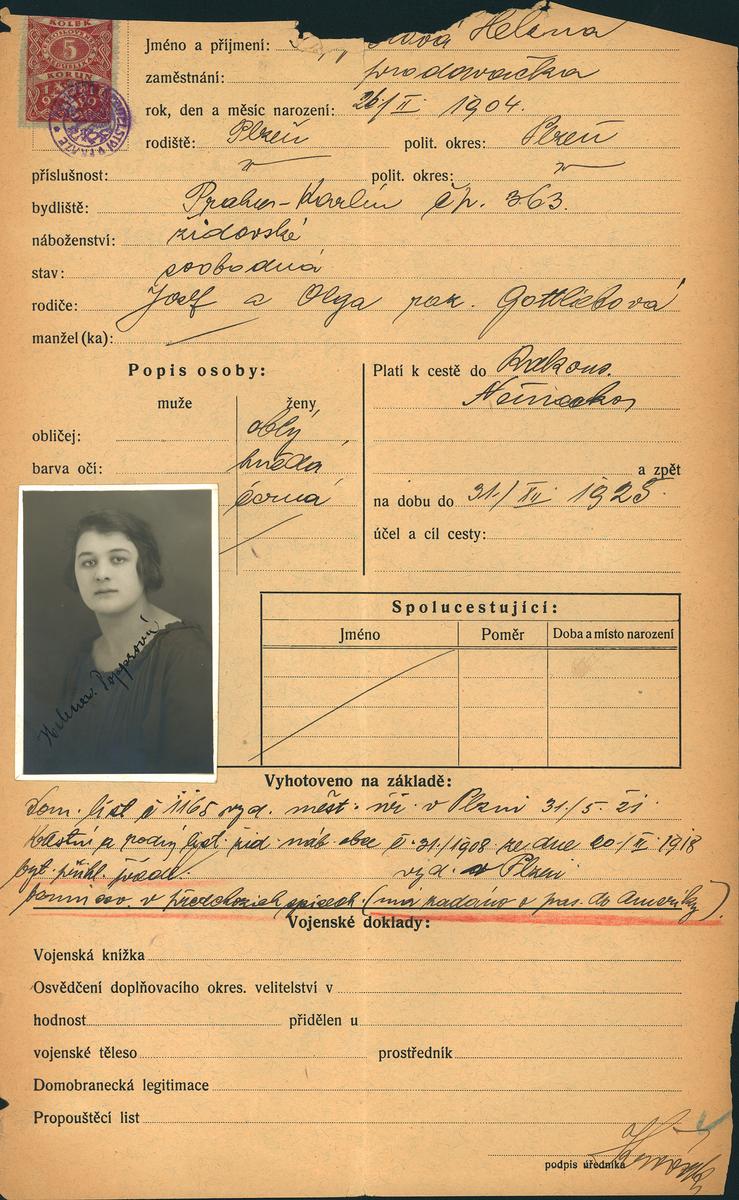 KOLEK
5
KORUN
Jméno a příjmení: Helena
zaměstnání: prodavačka
rok, den a měsíc narození: 26/II. 1904.
rodiště: Plzeň polit. okres: Plzeň
příslušnost: " polit. okres: "
bydliště: Praha-Karlín čp. 363.
náboženství: židovské
stav: svobodná
rodiče: Josef a Olga roz. Gottliebová
manžel (ka):
Popis osoby:
muže ženy
obličej: oblý
barva očí: hnědá
černá
Platí k cestě do Rakous.
Německa
a zpět
na dobu do 31./XII 1925.
účel a cíl cesty:
Helena Popprová
Spolucestující:
Jméno Poměr Doba a místo narození
Vyhotoveno na základě:
Dom. list č 1165 vyd. měst. v Plzni 31./5. 21.
a rodný list žid. náb. obce č. 31./1908 ze dne 20./II 1918
byt. přihl. vyd. v Plzni
v předchozích spisech (má žádáno o pas. do Ameriky)
Vojenské doklady:
Vojenská knížka
Osvědčení doplňovacího okres. velitelství v
hodnost přidělen u
vojenské těleso prostředník
Domobranecká legitimace
Propouštěcí list
podpis úředníka